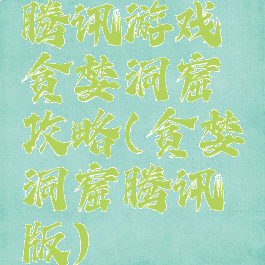 腾讯游戏
贪婪洞窟
攻略(贪婪
洞窟腾讯
版)